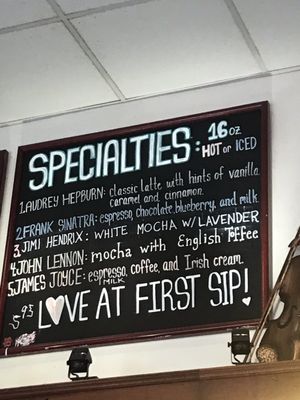 SPECIALTIES: 16 oz
HOT or ICED
1. AUDREY HEPBURN: classic latte with hints of vanilla,
caramel and cinnamon.
2 FRANK SINATRA: espresso, chocolate, blueberry, and milk
3. JIMI HENDRIX: WHITE MOCHA W/LAVENDER
4 JOHN LENNON: mocha with English Toffee
5. JAMES JOYCE: espresso, coffee, and Irish cream.
MILK
5.95 LOVE AT FIRST SIP!